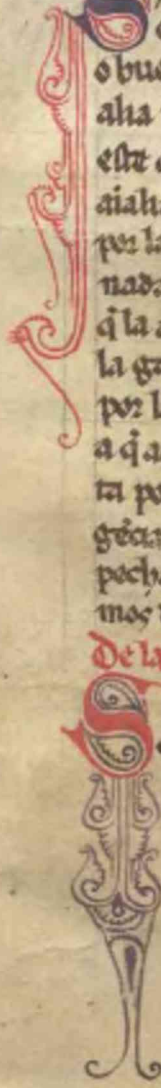 o bue
alia
este
aiali
por la
nada
q̃ la a
la ga
por l
a q̃ a
ta po
gẽcia
pech
mos
De la
S